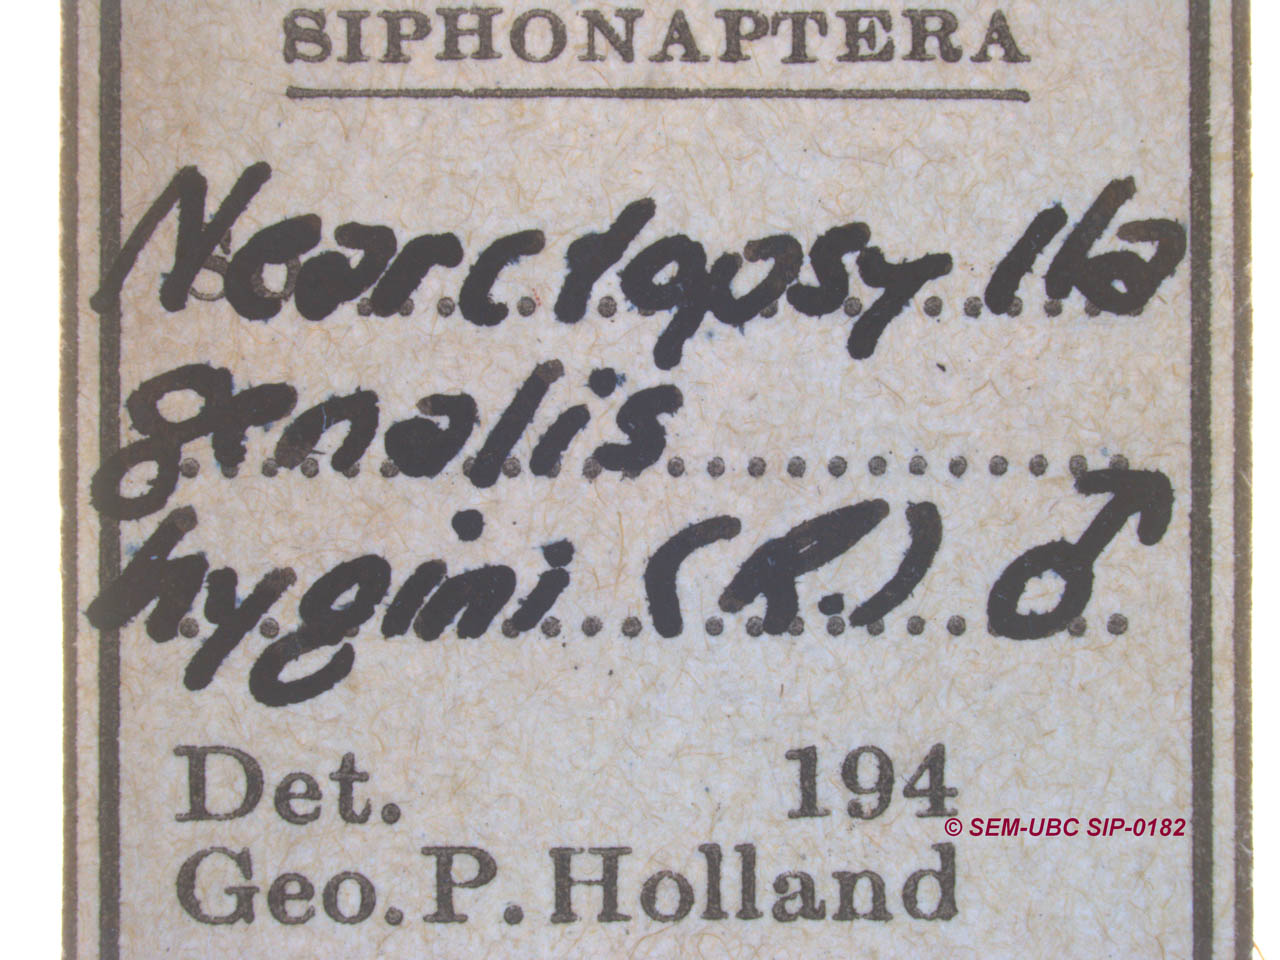 SIPHONAPTERA
Nearctopsylla
genalis
hygini (R.) ♂
Det. 194
© SEM-UBC SIP-0182
Geo. P. Holland